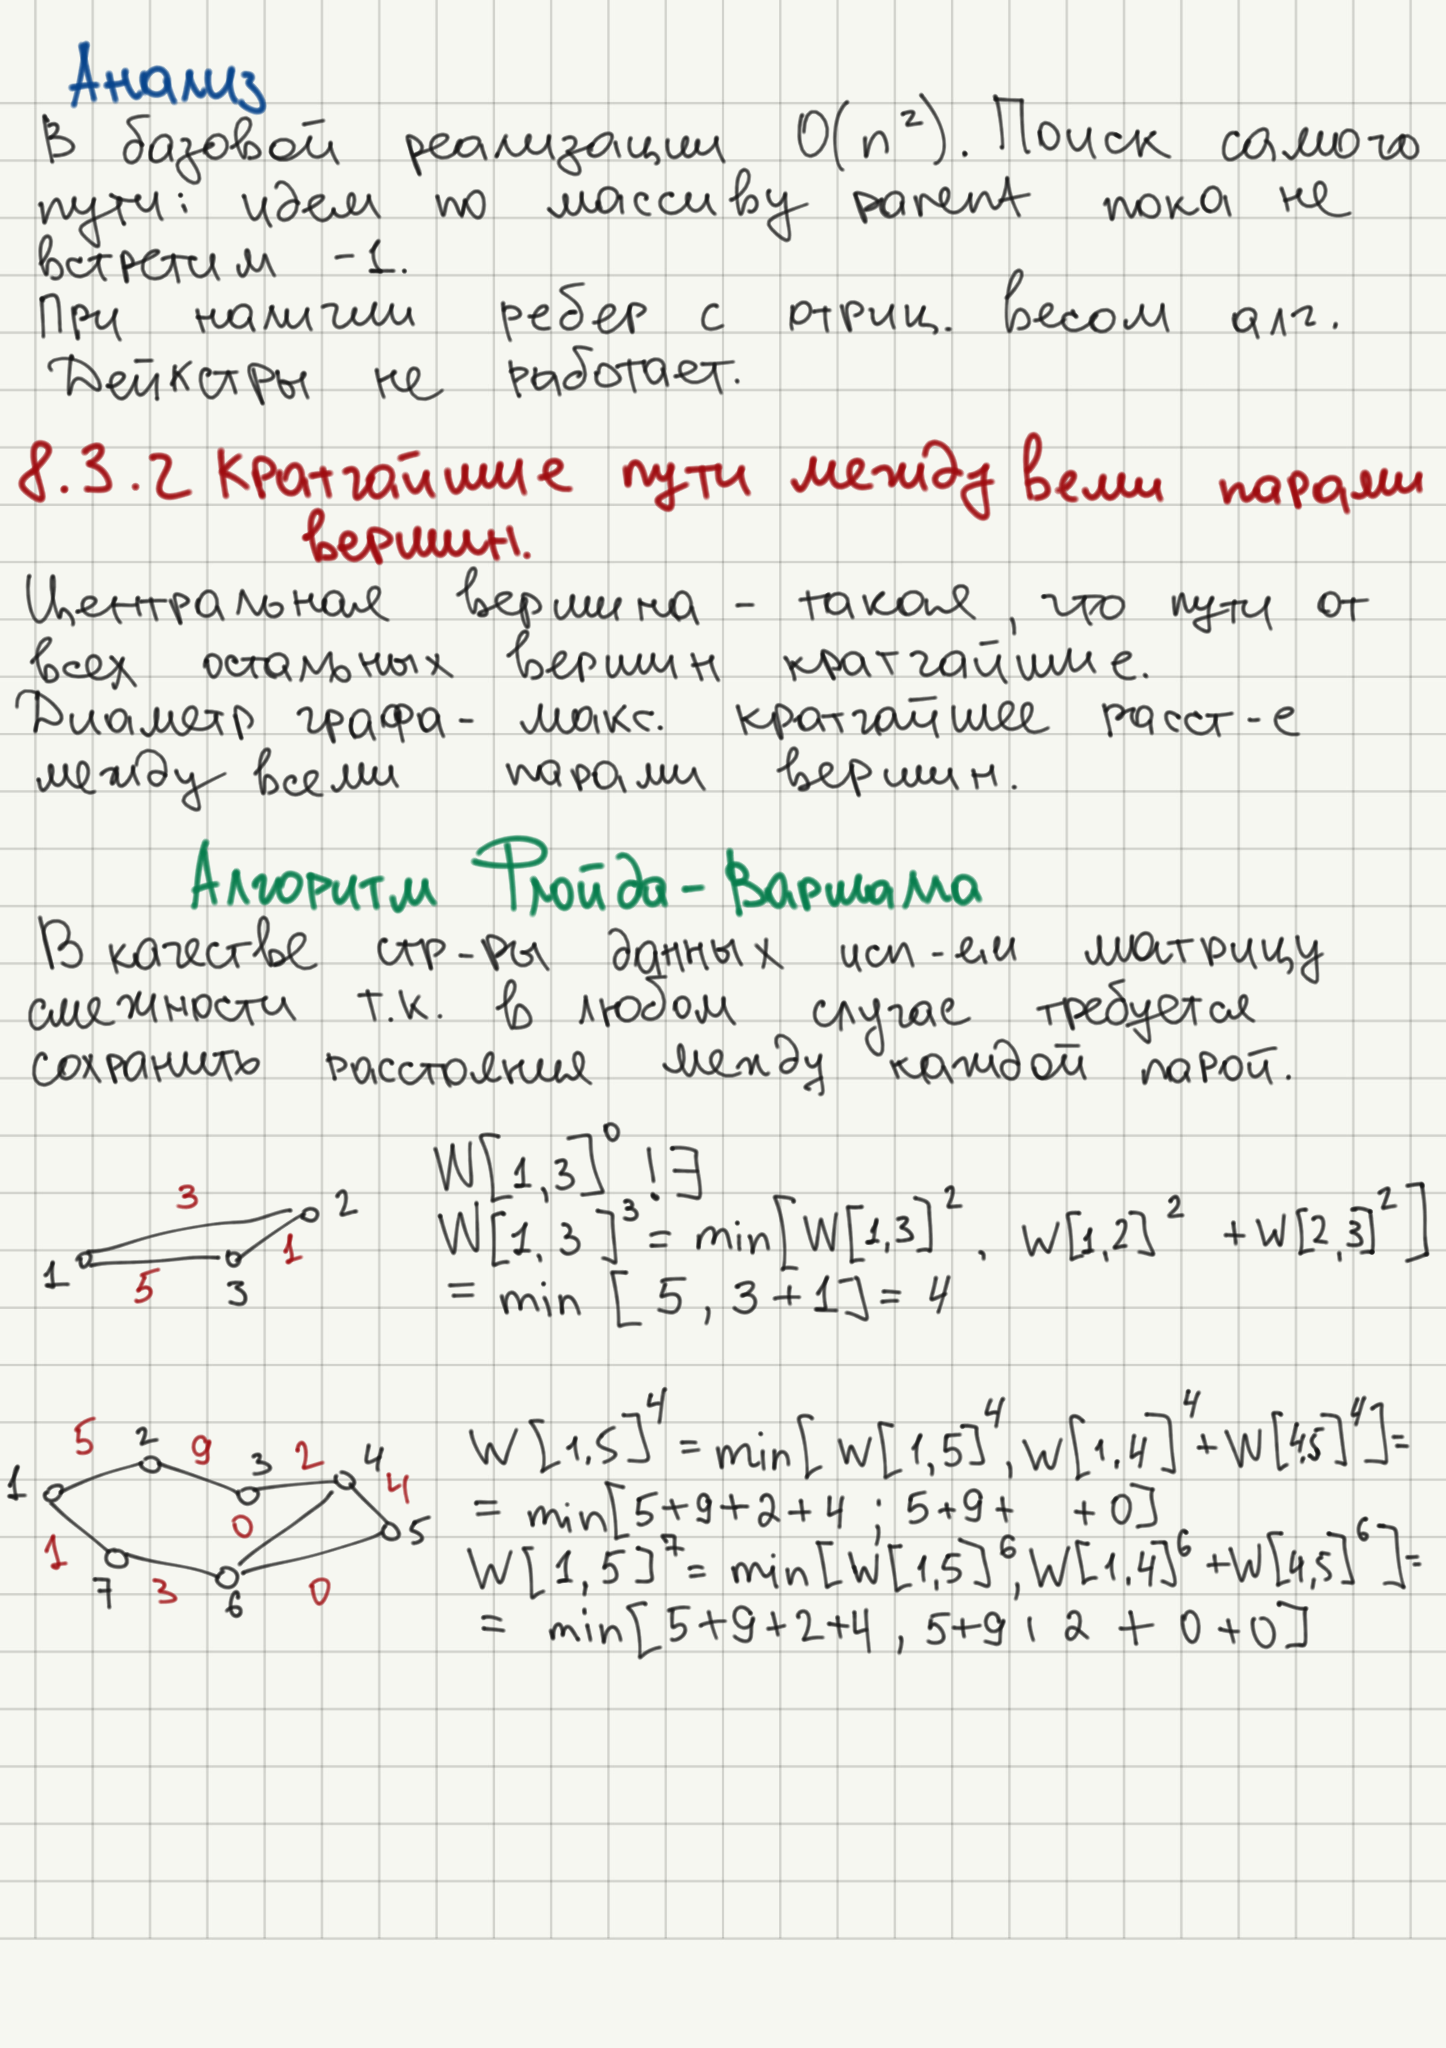 Анализ
В базовой реализации O(n²). Поиск самого
пути: идем по массиву parent пока не
встретим -1.
При наличии ребер с отриц. весом алг.
Дейкстры не работает.
8.3.2 Кратчайшие пути между веми парами
вершин.
Центральная вершина - такая, что пути от
всех остальных вершин кратчайшие.
Диаметр графа - макс. кратчайшее расст-е
между всеми парами вершин.
Алгоритм Флойда-Варшала
В качестве стр-ры данных исп-ем матрицу
смежности т.к. в любом случае требуется
сохранить расстояния между каждой парой.
W[1,3]⁰ !∃
3 2
W[1,3]³ = min[W[1,3]², W[1,2]² + W[2,3]²]
1 5 3 1
= min [5, 3+1] = 4
5 2 9 3 2 4 4
W[1,5]⁴ = min[W[1,5]⁴, W[1,4]⁴ + W[4,5]⁴] =
1 0 5
= min[5+9+2+4 ; 5+9+ +0]
1 7 3 6 0
W[1,5]⁷ = min[W[1,5]⁶, W[1,4]⁶ + W[4,5]⁶] =
= min[5+9+2+4, 5+9 2 + 0 +0]